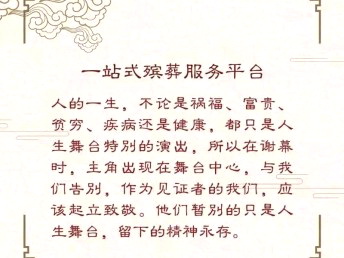 一站式殡葬服务平台
人的一生，不论是祸福、富贵、
贫穷、疾病还是健康，都只是人
生舞台特别的演出，所以在谢幕
时，主角出现在舞台中心，与我
们告别，作为见证者的我们，应
该起立致敬。他们暂别的只是人
生舞台，留下的精神永存。